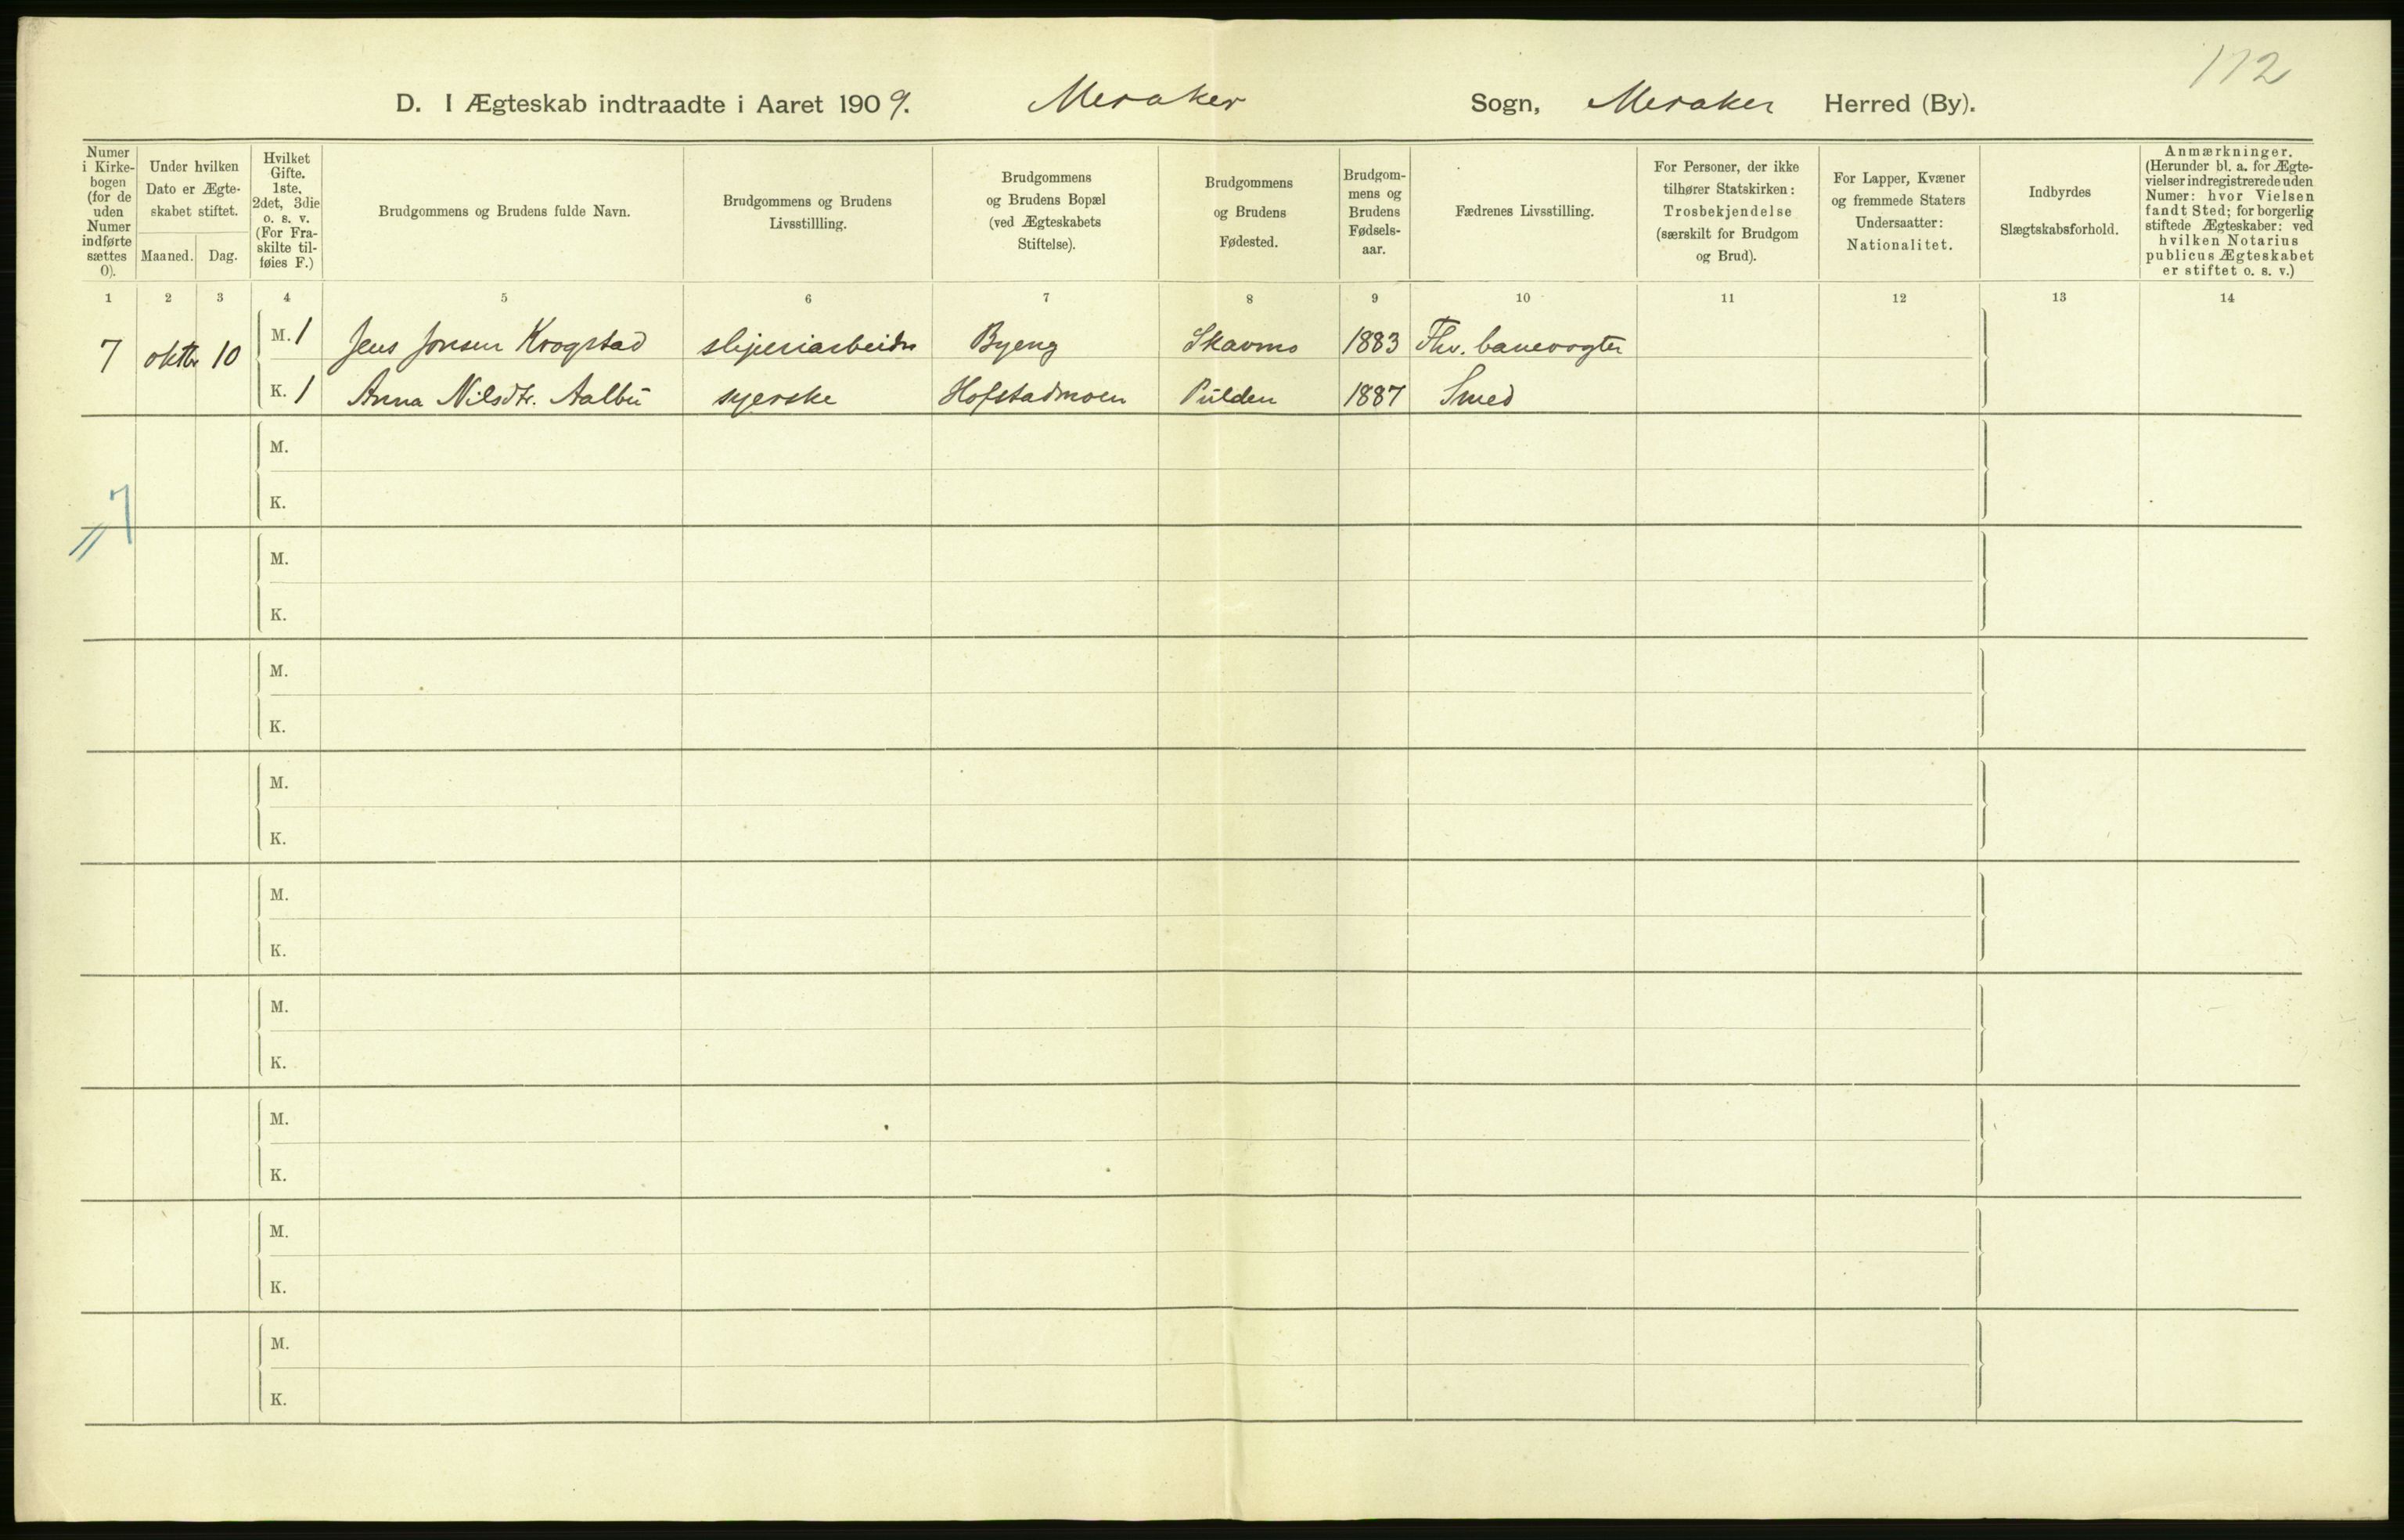 112
D. I Ægteskab indtraadte i Aaret 1909. Meraker Sogn, Meraker Herred (By).
Numer i Kirkebogen (for de uden Numer indførte sættes 0).
Under hvilken Dato er Ægteskabet stiftet.
Maaned. Dag.
Hvilket Gifte. 1ste, 2det, 3die o. s. v. (For Fraskilte tilføies F.)
Brudgommens og Brudens fulde Navn.
Brudgommens og Brudens Livsstillling.
Brudgommens og Brudens Bopæl (ved Ægteskabets Stiftelse).
Brudgommens og Brudens Fødested.
Brudgommens og Brudens Fødselsaar.
Fædrenes Livsstilling.
For Personer, der ikke tilhører Statskirken: Trosbekjendelse (særskilt for Brudgom og Brud).
For Lapper, Kvæner og fremmede Staters Undersaatter: Nationalitet.
Indbyrdes Slægtskabsforhold.
Anmærkninger. (Herunder bl. a. for Ægtevielser indregistrerede uden Numer: hvor Vielsen fandt Sted; for borgerlig stiftede Ægteskaber: ved hvilken Notarius publicus Ægteskabet er stiftet o. s. v.)
1 2 3 4 5 6 7 8 9 10 11 12 13 14
7 oktbr 10 M. 1 Jens Jonsen Krogstad sliperiarbeider Byeng Skavmo 1883 Fhv. banevogter
K. 1 Anna Nilsdtr. Aalbu syerske Hofstadmoen Pulden 1887 Smed
M.
K.
7
M.
K.
M.
K.
M.
K.
M.
K.
M.
K.
M.
K.
M.
K.
M.
K.